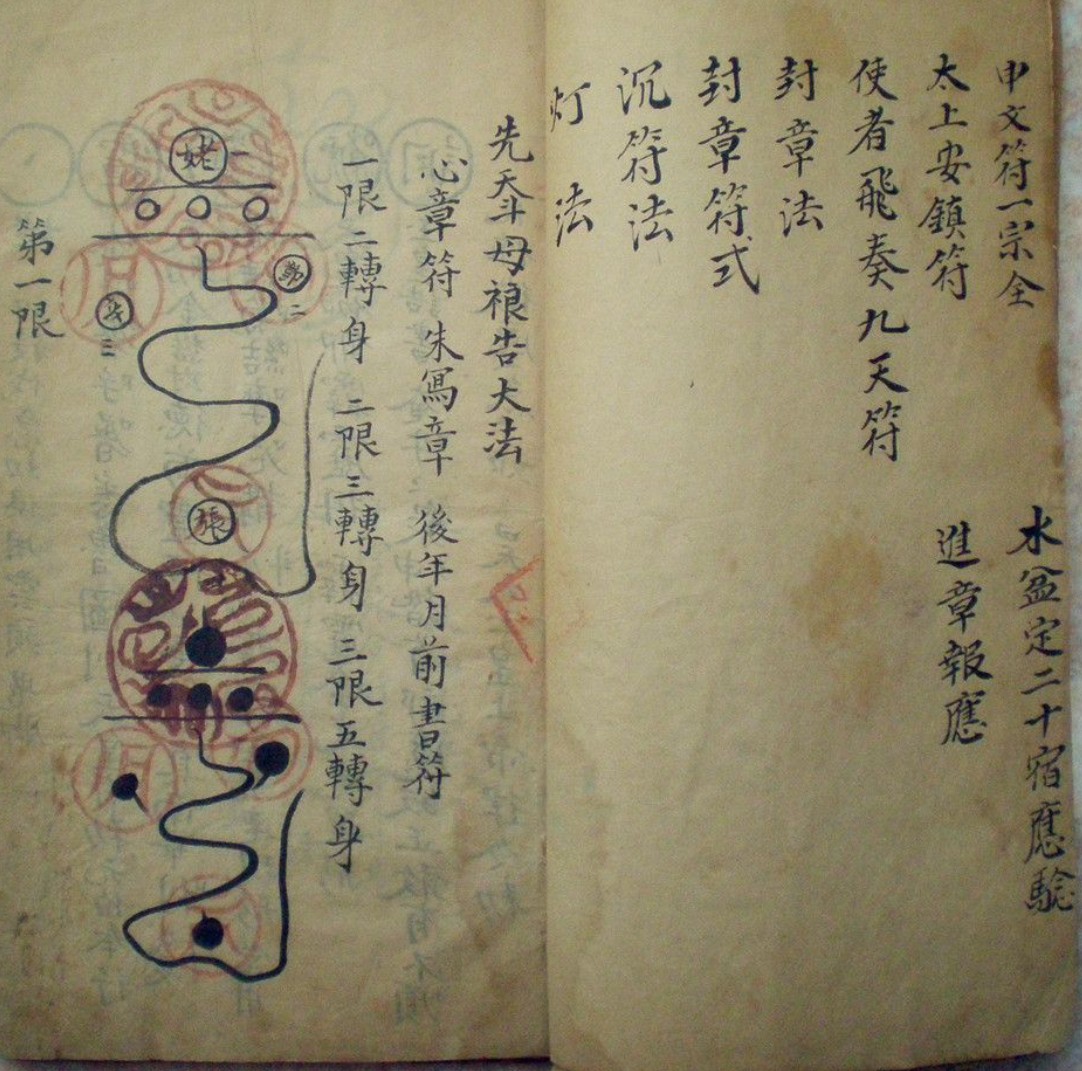 申文符一宗全
水盆定二十宿應驗
太上安鎮符
進章報應
使者飛奏九天符
封章法
封章符式
沉符法
灯法
先天斗母裉告大法
心章符 朱寫章 後年月前書符
一限二轉身 二限三轉身 三限五轉身
姥一
二
三
張
第一限